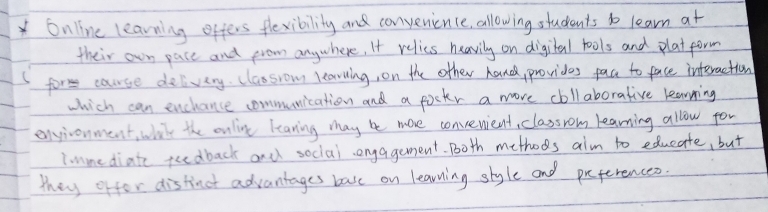 * Online learning offers flexibility and convenience, allowing students to learn at
their own pace and from anywhere. It relies heavily on digital tools and platform
form course delivery. Classrom learning, on the other hand, provides face to face interaction
which can enchance communication and a foster a more collaborative learning
environment, while the online learing may be more convenient, classrom learning allow for
immediate feedback and social engagement. Both methods aim to educate, but
they offer distinct advantages base on learning style and preferences.